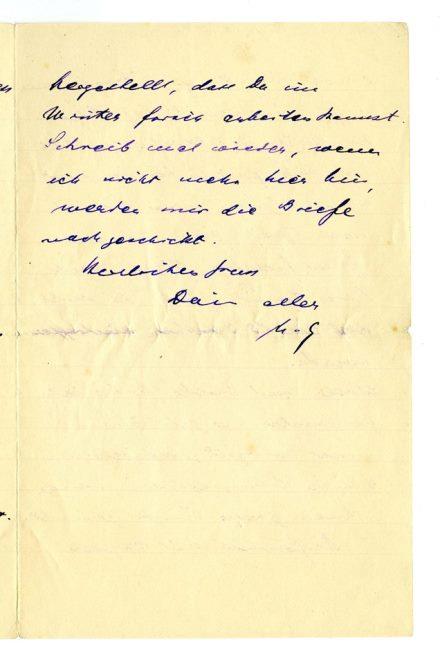 hergestellt, dass Du im
Winter forsch arbeiten kannst.
Schreib mal wieder, wenn
ich nicht mehr hier bin,
werden mir die Briefe
nachgeschickt.
Herzlichen Gruss
Dein alter